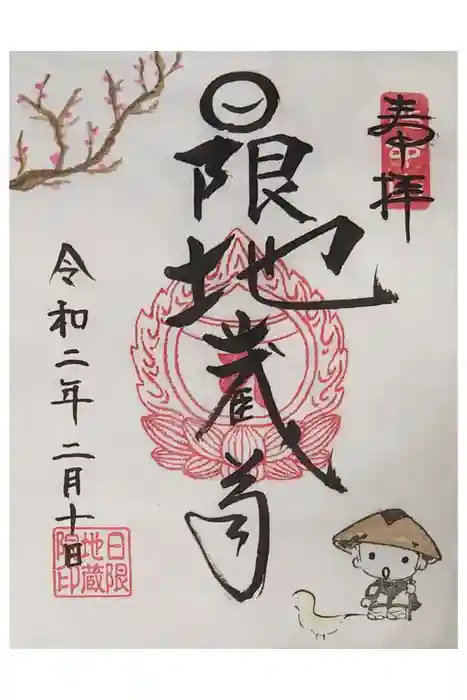 奉拝
日限地蔵尊
令和二年 二月十日
日限
地蔵
院印